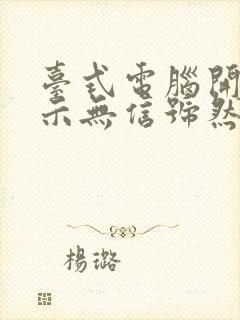 臺式電腦開
示無信號然
楊璐